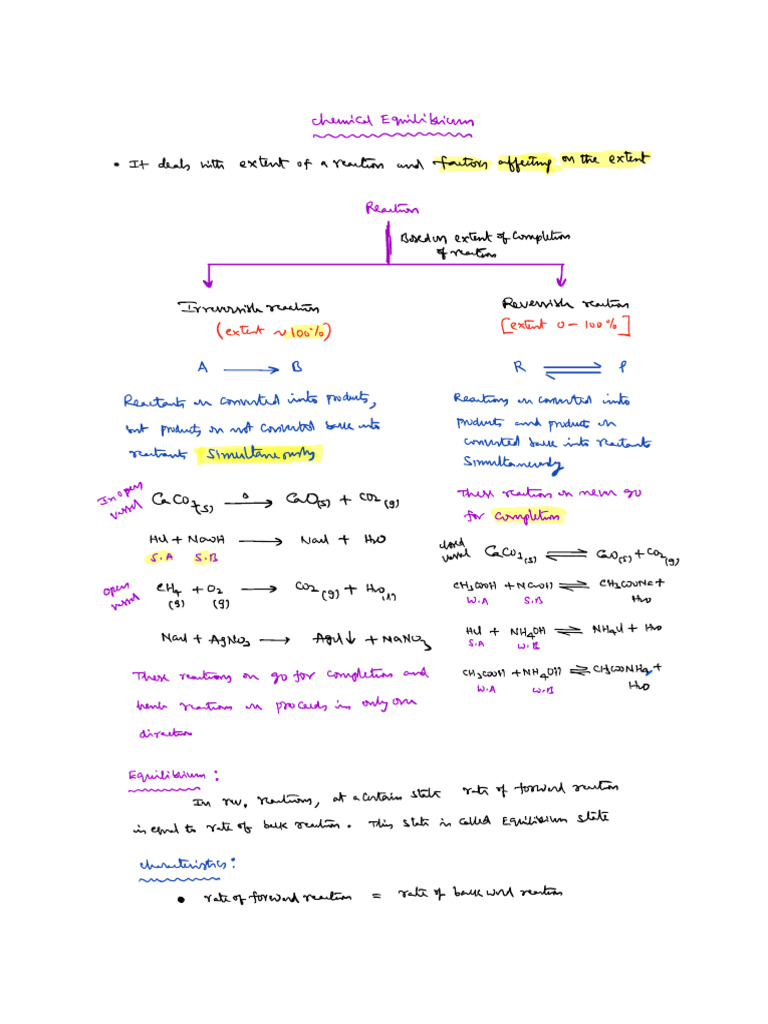 Chemical Equilibrium
• It deals with extent of a reaction and factors affecting on the extent
Reaction
Based on extent of Completion
of reaction
Irreversible reaction
(extent ~ 100%)
A ⟶ B
Reactants are converted into products,
but products are not converted back into
reactants Simultaneously
In open
vessel
CaCO3(s) —Δ→ CaO(s) + CO2(g)
HCl + NaOH ⟶ NaCl + H2O
S.A S.B
open
vessel
CH4(g) + O2(g) ⟶ CO2(g) + H2O(l)
NaCl + AgNO3 ⟶ AgCl↓ + NaNO3
These reactions are go for completion and
hence reactions are proceeds in only one
direction
Reversible reaction
[extent 0 – 100%]
R ⇌ P
Reactions are converted into
products and products are
converted back into reactants
Simultaneously
These reaction are never go
for Completion
closed
vessel
CaCO3(s) ⇌ CaO(s) + CO2(g)
CH3COOH + NaOH ⇌ CH3COONa +
H2O
W.A S.B
HCl + NH4OH ⇌ NH4Cl + H2O
S.A W.B
CH3COOH + NH4OH ⇌ CH3COONH4 +
H2O
W.A W.B
Equilibrium :
In rev. reactions, at a certain state rate of forward reaction
is equal to rate of back reaction. This state is called Equilibrium state
characteristics :
• rate of forward reaction = rate of backward reaction